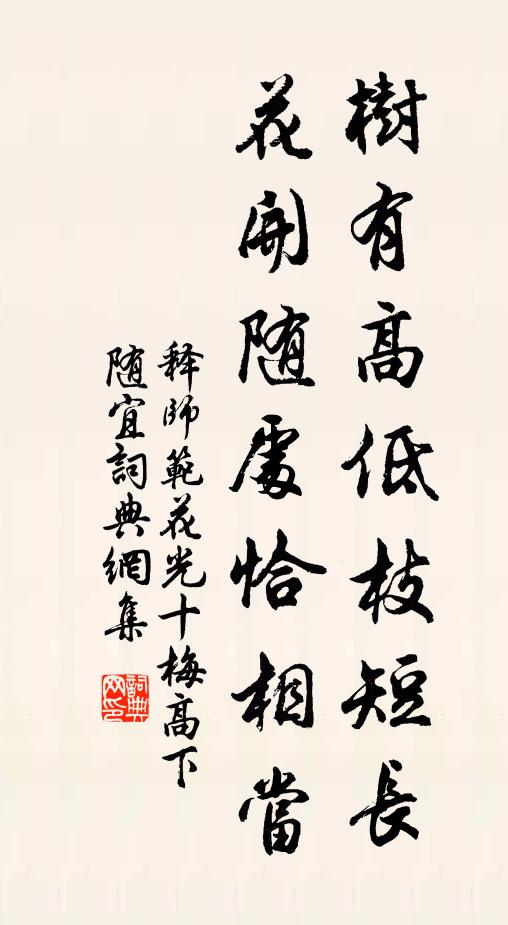 樹有高低枝短長
花開随處恰相當
释師範花光十梅高下
随宜詞典網集
詞典网印